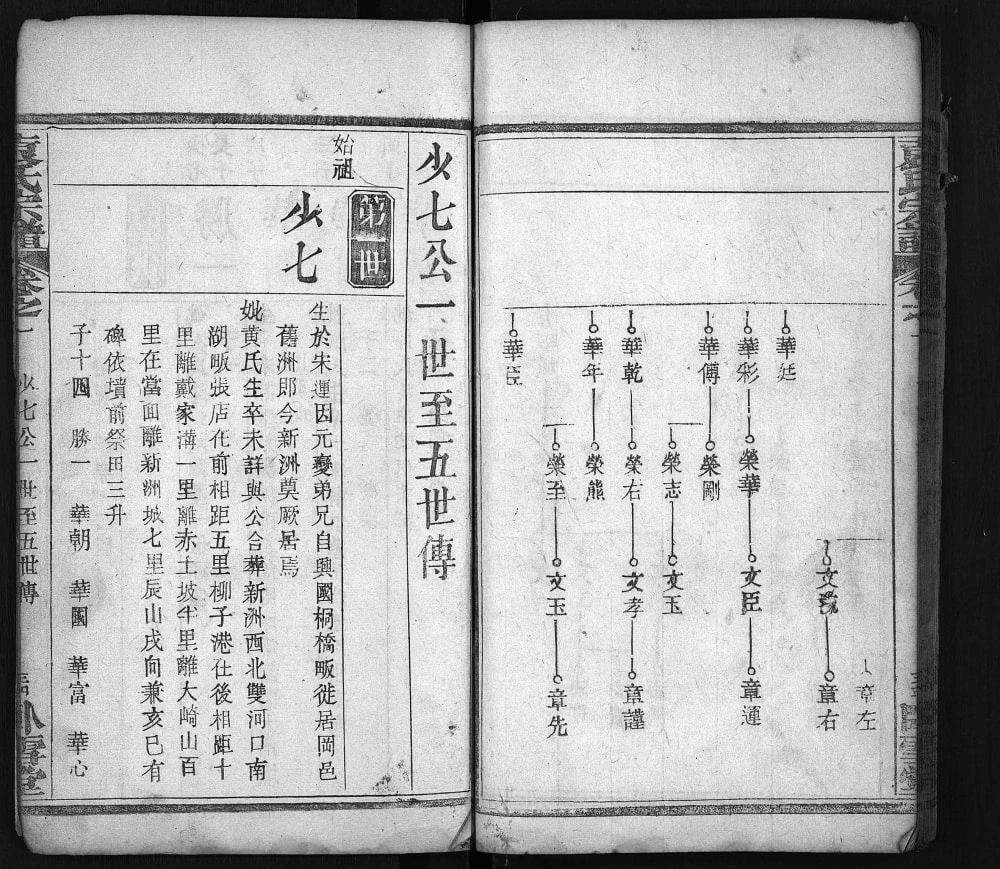 章左
文
章右
華廷
華彩
榮華
文臣
章運
華傳
榮剛
榮志
文玉
華乾
榮右
文孝
章謹
華年
榮熊
榮至
文玉
章先
華臣
少七公一世至五世傳
第一世
始祖
少七
生於宋運因元變弟兄自興國桐橋畈徙居岡邑
舊洲即今新洲奠厥居焉
妣黄氏生卒未詳與公合葬新洲西北雙河口南
湖畈張店在前相距五里柳子港在後相距十
里離戴家溝一里離赤土坡半里離大崎山百
里在當面離新洲城七里辰山戌向兼亥巳有
碑依墳前祭田三升
子十四 勝一 華朝 華國 華富 華心
袁氏宗譜 卷之一 少七公一世至五世傳 臥雪堂